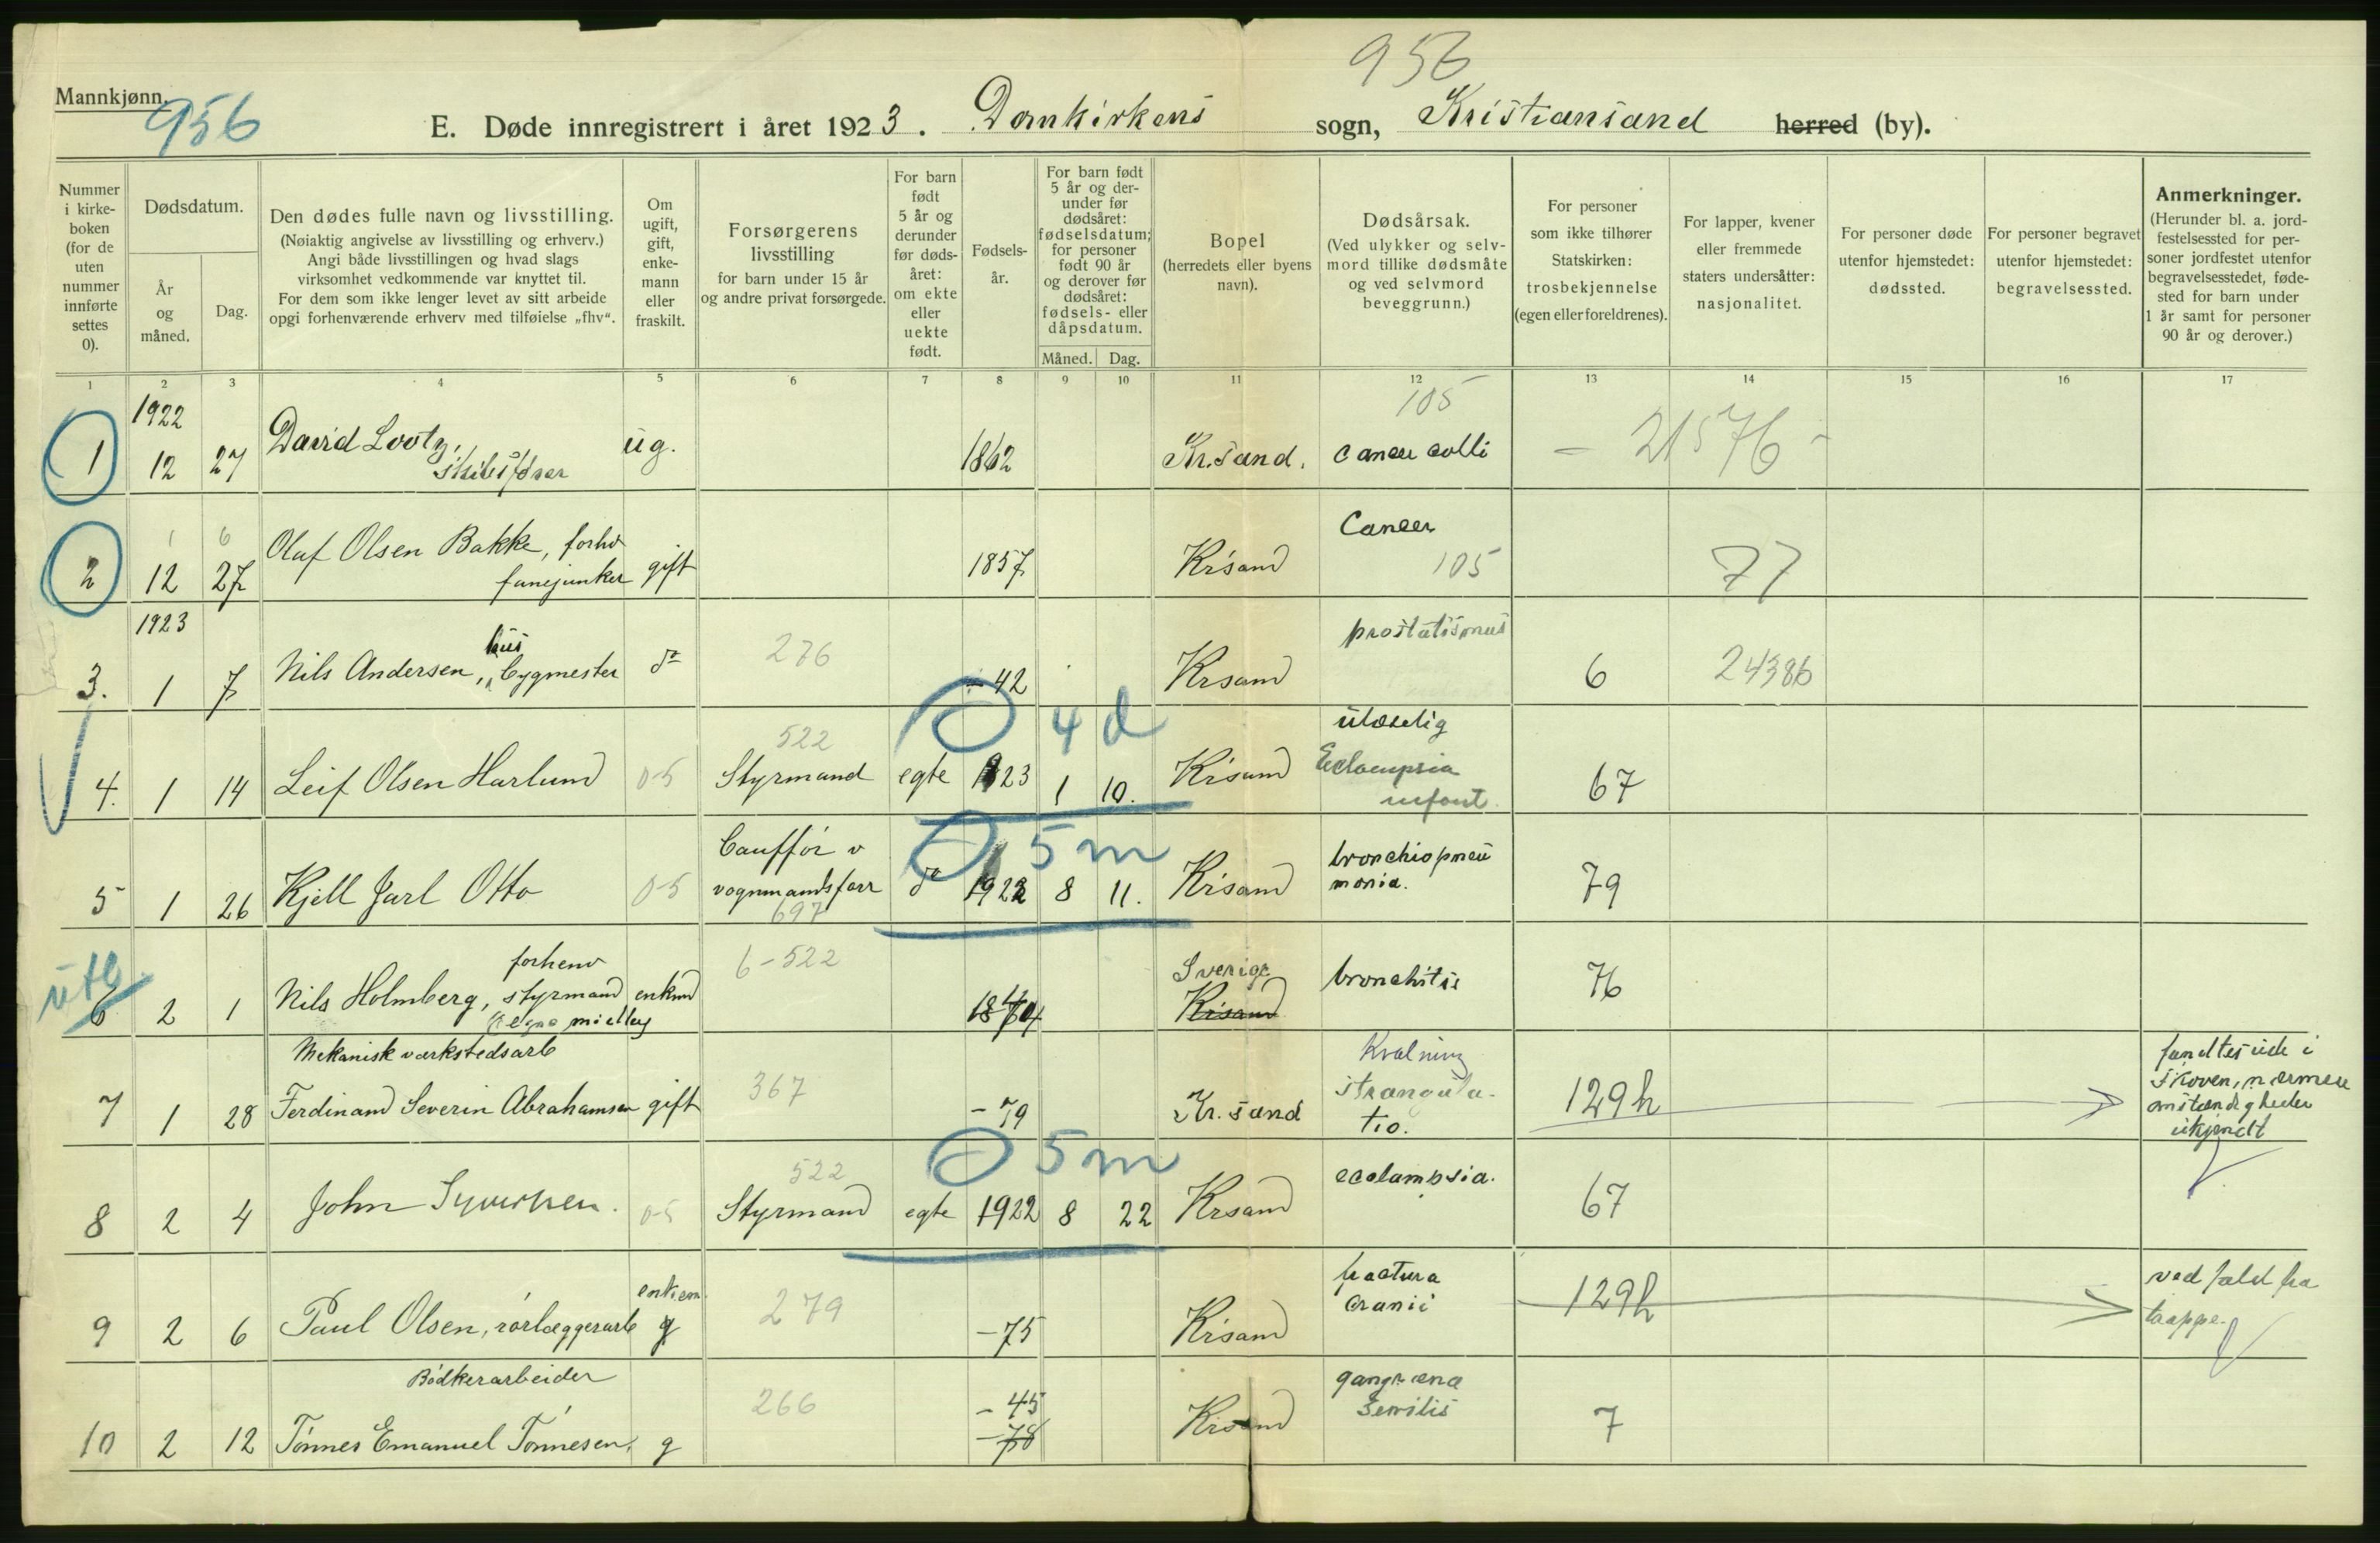 Mannkjønn.
956
956
E. Døde innregistrert i året 1923. Domkirkens sogn, Kristiansand herred (by).
Nummer i kirke- boken (for de uten nummer innførte settes 0).
Dødsdatum.
År og måned.
Dag.
Den dødes fulle navn og livsstilling.
(Nøiaktig angivelse av livsstilling og erhverv.)
Angi både livsstillingen og hvad slags
virksomhet vedkommende var knyttet til.
For dem som ikke lenger levet av sitt arbeide
opgi forhenværende erhverv med tilføielse „fhv“.
Om ugift, gift, enke- mann eller fraskilt.
Forsørgerens
livsstilling
for barn under 15 år
og andre privat forsørgede.
For barn født 5 år og derunder før døds- året: om ekte eller uekte født.
Fødsels- år.
For barn født 5 år og der- under før dødsåret: fødselsdatum; for personer født 90 år og derover før dødsåret: fødsels- eller dåpsdatum.
Måned. Dag.
Bopel
(herredets eller byens
navn).
Dødsårsak.
(Ved ulykker og selv-
mord tillike dødsmåte
og ved selvmord
beveggrunn.)
For personer
som ikke tilhører
Statskirken:
trosbekjennelse
(egen eller foreldrenes).
For lapper, kvener
eller fremmede
staters undersåtter:
nasjonalitet.
For personer døde
utenfor hjemstedet:
dødssted.
For personer begravet
utenfor hjemstedet:
begravelsessted.
Anmerkninger.
(Herunder bl. a. jord-
festelsessted for per-
soner jordfestet utenfor
begravelsesstedet, føde-
sted for barn under
1 år samt for personer
90 år og derover.)
1 2 3 4 5 6 7 8 9 10 11 12 13 14 15 16 17
1922
105
1 12 27 David Lootz, ug. 1862 Kr.sand. cancer colli - 21576 -
Skibsfører
1 6
Cancer
2 12 27 Olaf Olsen Bakke, forhv gift 1857 Krsand 105 77
fanejunker
1923
3. 1 7 Nils Andersen, hus bygmester do 276 - 42 Krsand prostatismus 6 24386
522 4 d ulæselig
4. 1 14 Leif Olsen Harlund 0-5 Styrmand egte 1923 1 10. Krsand Eclampsia infant. 67
5 m
5 1 26 Kjell Jarl Otto 0-5 Cauffør v vognmandsforr do 1922 8 11. Krsand bronchiopneu monia. 79
697
utb
6 2 1 Nils Holmberg, forhenv styrmand enkmd 6-522 Sverige Krsand bronchitis 76
Mekanisk værkstedsarb
7 1 28 Ferdinand Severin Abrahamsen gift 367 - 79 Kr.sand Kvælning strangula- tio. 129h fandtes ude i skoven, nærmere omstændigheder ukjendt
522 5 m
8 2 4 John 0-5 Styrmand egte 1922 8 22 Krsand eclampsia. 67
9 2 6 Paul Olsen, rørlæggerarb enkem. g 279 - 75 Krsand fractura cranii 129h ved fald fra trappe.
Bødkerarbeider
10 2 12 Tønnes Emanuel Tønnesen. g 266 - 45 - 78 Krsand gangræna senilis 7